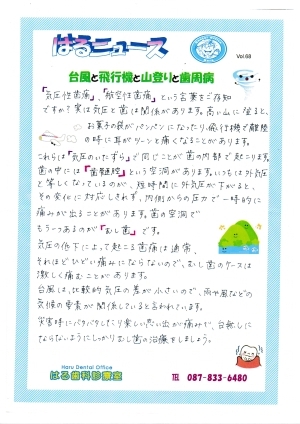 はるニュース
Vol 68
台風と飛行機と山登りと歯周病
「気圧性歯痛」、「航空性歯痛」という言葉をご存知
ですか？実は気圧と歯は関係があります。高い山に登ると、
お菓子の袋がパンパンになったり、飛行機で離陸
の時に耳がツーンと痛くなることがあります。
これらは「気圧のいたずら」で同じことが歯の内部で起こります。
歯の中には「歯髄腔」という空洞があります。いつもは外気圧
と等しくなっているのが、短時間に外気圧が下がると、
その変化に対応しきれず、内側からの圧力で一時的に
痛みが出ることがあります。歯の空洞で
もう一つあるのが「むし歯」です。
気圧の低下によって起こる歯痛は通常
それほどひどい痛みにならないので、むし歯のケースは
激しく痛むことがあります。
台風は、比較的気圧の差が小さいので、雨や風などの
気候の要素が関係していると言われています。
災害時にバタバタしたり楽しい思い出が痛みで、台無しに
ならないようにしっかりむし歯の治療をしましょう。
Haru Dental Office
はる歯科診療室
TEL 087-833-6480